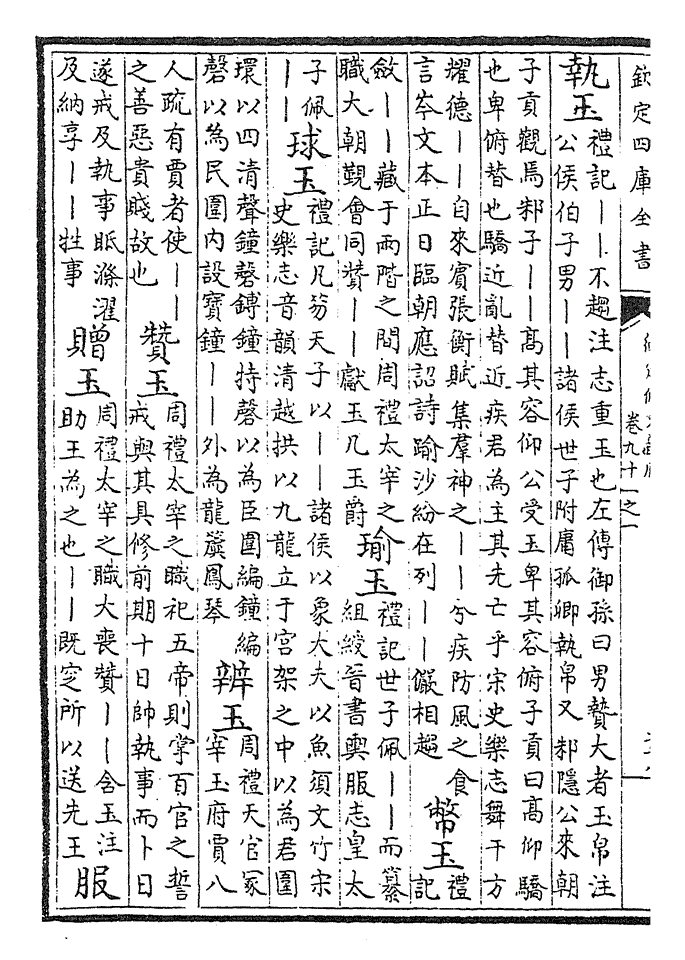 欽定四庫全書
卷九十一之一
執玉
禮記丨丨不趨注志重玉也左傳御孫曰男贄大者玉帛注
公侯伯子男丨丨諸侯世子附庸孤卿執帛又邾隱公來朝
子貢觀焉邾子丨丨高其容仰公受玉卑其容俯子貢曰高仰驕
也卑俯替也驕近亂替近疾君為主其先亡乎宋史樂志舞干方
耀德丨丨自來賓張衡賦集羣神之丨丨兮疾防風之食
言岑文本正日臨朝應詔詩踰沙紛在列丨丨儼相趨
幣玉
禮
記
斂丨丨藏于兩階之間周禮太宰之
職大朝覲會同贊丨丨獻玉几玉爵
瑜玉
禮記世子佩丨丨而綦
組綬晉書輿服志皇太
子佩
丨丨
球玉
禮記凡笏天子以丨丨諸侯以象大夫以魚須文竹宋
史樂志音韻清越拱以九龍立于宮架之中以為君圍
環以四清聲鐘磬鎛鐘特磬以為臣圍編鐘編
磬以為民圍内設寳鐘丨丨外為龍簴鳳琴
辨玉
周禮天官冢
宰玉府賈八
人疏有賈者使丨丨
之善惡貴賤故也
贊玉
周禮太宰之職祀五帝則掌百官之誓
戒與其具修前期十日帥執事而卜日
遂戒及執事眡滌濯
及納享丨丨牲事
贈玉
周禮太宰之職大喪贊丨丨含玉注
助王為之也丨丨既窆所以送先王
服